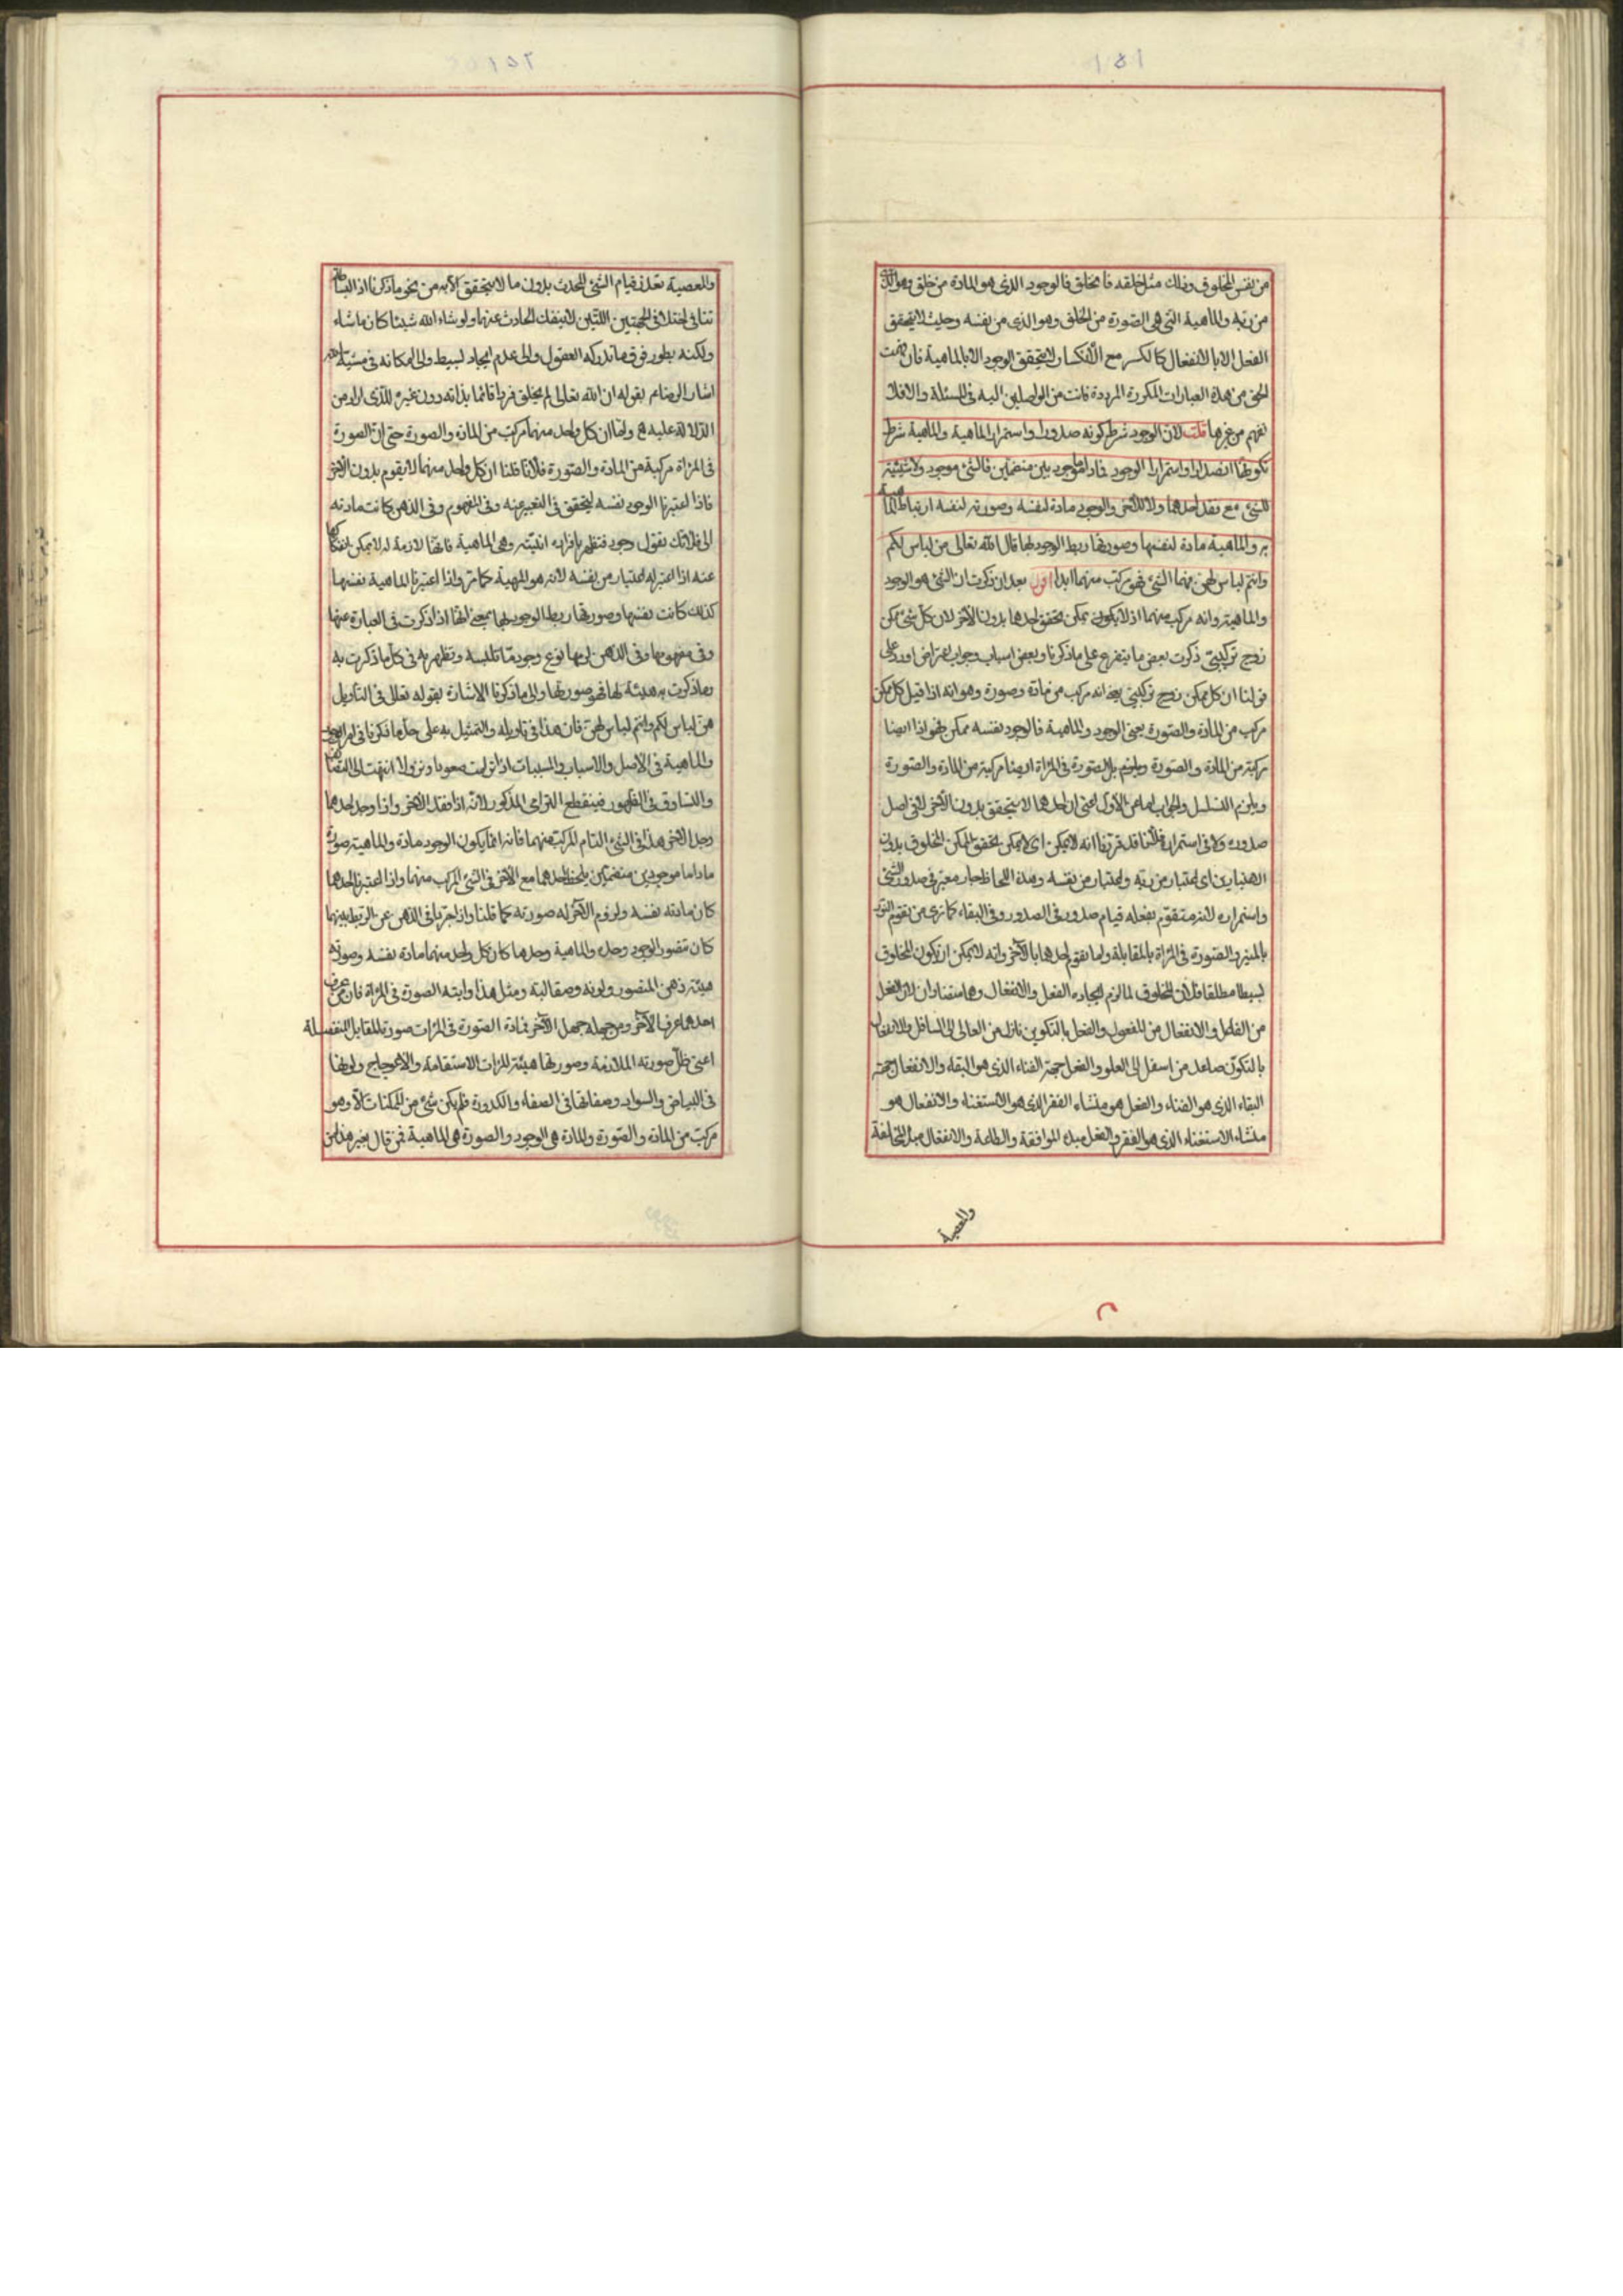 ١٥١
من نفس المخلوق وذلك مثل خلقه فانخلق فالوجود الذى هو المادة من خلق وهو الذى
من ربه والماهية التى هى الصورة من انخلق وهو الذى من نفسه وحيث لا يتحقق
الفعل الا بالانفعال كالكسر مع الانكسار لا يتحقق الوجود الا بالماهية فان فهمت
الحق من هذه العبارات المكررة المرددة فانت من الواصلين اليه فى المسئلة والا فلا
تفهم من غيرها قلت لان الوجود شرط كونه صدورا واستمرارا الماهية والماهية شرط
تكونها انصدارا واستمرارا الوجود فما داما موجودين منضمين فالشئ موجود ولا شيئية
للشئ مع فقد احدهما ولا للاخر والوجود مادة لنفسه وصورته لنفسه ارتباط الماهية
به والماهية مادة لنفسها وصورتها ربط الوجود لها قال الله تعالى هن لباس لكم
وانتم لباس لهن فهما الشئ فهو مركب منهما ابدا اقول بعد ان ذكرت ان الشئ هو الوجود
والماهية وانه مركب منهما اذ لا يكون ممكن يتحقق احدهما بدون الآخر لان كل شئ ممكن
زوج تركيبى ذكرت بعض ما يتفرع على ما ذكرنا وبعض اسباب وجواب اعتراض اورد على
قولنا ان كل ممكن زوج تركيبى يعنى انه مركب من مادة وصورة وهو انه اذا قيل كل ممكن
مركب من المادة والصورة يعنى الوجود والماهية فالوجود نفسه ممكن فهو اذا ايضا
مركبة من المادة والصورة ويلزم بل الصورة فى المرآة ايضا مركبة من المادة والصورة
ويلزم التسلسل والجواب اما عن الأول اعنى ان احدهما لا يتحقق بدون الآخر لا فى اصل
صدوره ولا فى استمراره فلأنا قد قررنا انه لا يمكن اى لا يمكن تحقق الممكن المخلوق بدون
الاعتبارين اى اعتبار من ربه واعتبار من نفسه وهذه اللحاظ جار معتبر فى صدور الشئ
واستمراره لانه متقوم بفعله قيام صدور فى الصدور وفى البقاء كما ترى من تقوم النور
بالمنير والصورة فى المرآة بالمقابلة واما تقوم احدهما بالآخر وانه لا يمكن ان يكون المخلوق
بسيطا مطلقا فلأن المخلوق لما لزم ايجاده الفعل والانفعال وهما متضادان لان الفعل
من الفاعل والانفعال من المفعول والفعل بالتكوين نازل من العالى الى السافل والانفعال
بالتكون صاعد من اسفل الى العلو والفعل جهة الفناء الذى هو البقاء والانفعال جهة
البقاء الذى هو الفناء والفعل هو منشاء الفقر الذى هو الاستغناء والانفعال هو
منشاء الاستغناء الذى هو الفقر والفعل مبدء الموافقة والطاعة والانفعال مبدء المخالفة
والمعصية
١٥٢
والمعصية تعذر قيام الشئ المحدث بدون ما لا يتحقق الا به من نحو ما ذكرنا اذ البساطة
تنافى اختلاف الجهتين اللتين لا ينفك الحادث عنهما ولو شاء الله شيئا كان ما شاء
ولكنه بطور فوق ما تدركه العقول والى عدم ايجاد بسيط والى امكانه فى مشيته
اشار الرضا ع بقوله ان الله تعالى لم يخلق فردا قائما بذاته دون غيره للذى اراد من
الدلالة عليه ع واما ان كل واحد منهما مركب من المادة والصورة حتى ان الصورة
فى المرآة مركبة من المادة والصورة فلأنا قلنا ان كل واحد منهما لا يقوم بدون الآخر
فاذا اعتبرنا الوجود نفسه ليتحقق فى التعبير عنه وفى المفهوم وفى الذهن كانت مادته
الى فلانك تقول وجود فتظهر بافراده انيته وهى الماهية فانها لازمة له لا يمكن انفكاكها
عنه اذا اعتبر له اعتبار من نفسه لانه هو المهية كما مر واذا اعتبرنا الماهية نفسها
كذلك كانت نفسها وصورتها ربط الوجود لها بمعنى انها اذا ذكرت فى العبارة عنها
وفى مفهومها وفى الذهن لزمها نوع وجود ما تلبسه وتظهر به فى كل ما ذكرت به
وما ذكرت به هيئة لها فهو صورتها والى ما ذكرنا الاشارة بقوله تعالى فى التأويل
هن لباس لكم وانتم لباس لهن فان هذا فى تأويله والتمثيل به على حد ما ذكرنا فى امر الوجود
والماهية فى الاصل والاسباب والمسببات اذا ترتبت صعودا ونزولا انتهت الى التضايف
والتساوق فى الظهور فينقطع الترامى المذكور لانه اذا فقد الآخر واذا وجد احدهما
وجد الآخر هذا فى الشئ التام المركب منهما فانه انما يكون الوجود مادة والماهية صورة
ما داما موجودين منضمين يلحظ احدهما مع الآخر فى الشئ المركب منهما واذا اعتبرنا احدهما
كان مادته نفسه ولزوم الآخر له صورته كما قلنا واذا جردنا فى الذهن عن الربط بينهما
كان تصور الوجود وحده والماهية وحدها كان كل واحد منهما مادة نفسه وصورته
هيئة ذهن المتصور ولونه وصقالته ومثل هذا وايته الصورة فى المرآة فان من عرف
احدهما عرف الآخر ومن جهله جهل الآخر فمادة الصورة فى المرآت صورة المقابل المنفصلة
اعنى ظل صورته الملازمة وصورتها هيئة المرآت الاستقامة والاعوجاج ولونها
فى البياض والسواد وصقالتها فى الصفاء والكدورة فلم يكن شئ من الممكنات الا وهو
مركب من المادة والصورة والمادة هى الوجود والصورة هى الماهية فمن قال بغير هذا من